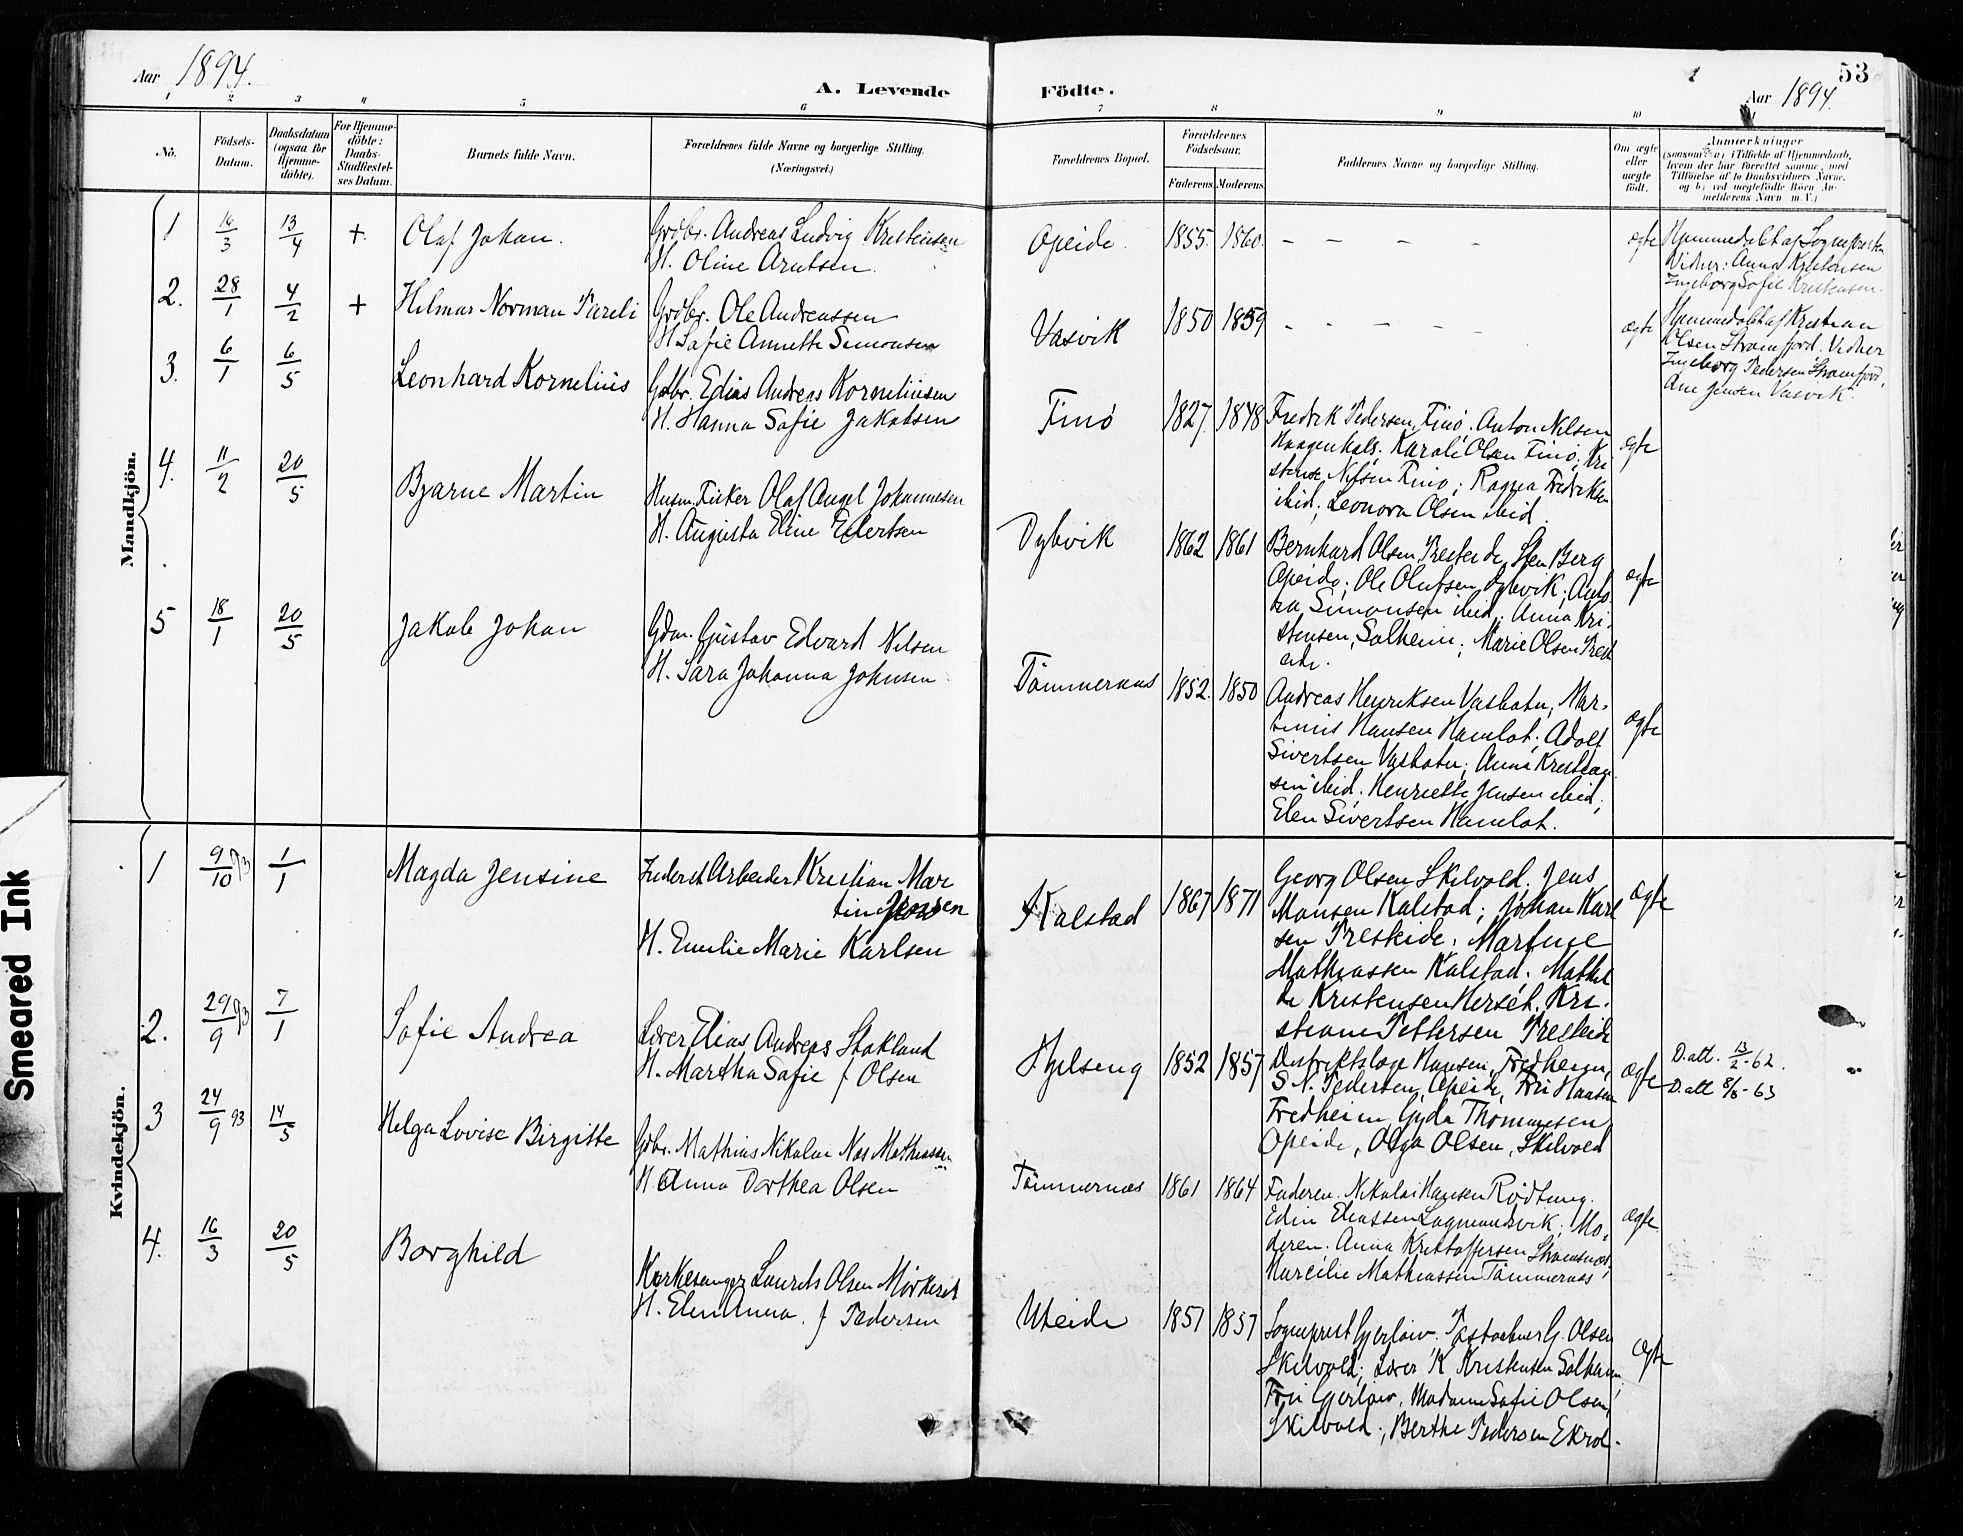 Aar 1894.
A. Levende Födte.
53
Aar 1894.
1 2 3 4 5 6 7 8 9 10
No.
Födsels-Datum.
Daabsdatum (ogsaa for Hjemme-döbte).
For Hjemme-döbte: Daabs-Stadfæstel-ses Datum.
Barnets fulde Navn.
Forældrenes fulde Navne og borgerlige Stilling. (Næringsvei.)
Forældrenes Bopæl.
Forældrenes Födselsaar.
Faderens. Moderens.
Faddernes Navne og borgerlige Stilling.
Om ægte eller uægte födt.
Anmærkninger
(saasom: a) i Tilfælde af Hjemmedaab,
hvem der har forrettet samme, med
Tilföielse af to Daabsvidners Navne,
og b) ved uægtefödte Börn An-
melderens Navn m. V.)
Mandkjön.
1 16/3 13/4 + Olaf Johan.
Grdbr. Andreas Ludvig Kristensen
H. Oline Arntsen.
Opeide. 1855. 1860. - - - - ægte
Hjemmedøbt af Sognepresten
Vidner: Anna Kristensen
Ingeborg Sofie Kristensen.
2. 28/1 4/2 + Hilmar Norman Pareli
Grdbr. Ole Andreassen
H. Sofie Annette Simonsen
Vasvik 1850 1859 - - - - - ægte
Hjemmedøbt af Kristian
Olsen Strømfjord. Vidner
Ingeborg Pedersen Strømfjord,
Ane Jensen Vasvik.
3. 6/1 6/5 Leonhard Kornelius
Gdbr. Edias Andreas Korneliusen
H. Hanna Sofie Jakobsen
Finö 1827. 1848 ægte
Fredrik Pedersen, Finö. Anton Nilsen
Haagenhals; Karoli Olsen Finö; Kri
stense Nilsen Finö; Ragna Fredriksen
ibid; Leonora Olsen ibid.
4. 11/2 20/5 Bjarne Martin
Husm. Fisker Olaf Angel Johannesen
H. Augusta Eline Edertsen
Dybvik 1862 1861 ægte
Bernhard Olsen Presteide, Sten Berg
Opeide; Ole Olufsen Dybvik;
Simonsen ibid; Anna Kri-
stensen, Solheim; Marie Olsen Prest
eide.
5 18/1 20/5 Jakob Johan
Gdm. Gustav Edvard Nilsen
H. Sara Johanna Johnsen
Tömmernæs 1852. 1850 ægte
Andreas Henriksen Vasbotn, Mar-
tinus Hansen Hamlot, Adolf
Sivertsen Vasbotn; Anna Kristian
sen ibid. Henriette Jensen ibid;
Elen Sivertsen Hamlot.
Kvindekjön.
1 9/10 93 1/1 Magda Jensine
Inderst Arbeider Kristian Mar
tin Jensen
H. Emilie Marie Karlsen
Kalstad 1867 1871 ægte
Georg Olsen Skilvold. Jens
Monsen Kalstad; Johan Karl
sen Presteide. Martine
Mathiassen Kalstad. Mathil
de Kristensen Herset. Kri-
stiane Pettersen Presteide
2. 29/9 93 7/1 Sofie Andrea
Lærer Elias Andreas Stokland
H. Martha Sofie f Olsen
Hjelseng 1852 1857 ægte
Distriktslæge Hansen, Fredheim,
S. N. Pedersen, Opeide, Fru Hansen
Fredheim Gyda Thommesen
Opeide, Olga Olsen, Skilvold
D. att. 13/2-62.
D. att 8/5-63
3 24/9 93 14/5 Helga Lovise Birgitte
Gdbr. Mathias Nikolai Nos Mathiassen
H Anna Dorthea Olsen
Tömmernæs 1861 1864 ægte.
Faderen. Nikolai Hansen Rödtung.
Edin Eliassen Lagmandsvik; Mo-
deren. Anna Kristoffersen Strømsnæs;
Marcilie Mathiassen Tömmernæs
4. 16/3 20/5 Borghild
Kirkesanger Laurits Olsen Mörkerid
H. Elen Anna. f Pedersen
Uteide 1851 1857 ægte
Sogneprest Gjerlöw. G. Olsen
Skilvold; Lærer K Kristensen Solheim;
Fru Gjerlöw, Madame Sofie Olsen,
Skilvold; Berthe Pedersen
Smeared Ink